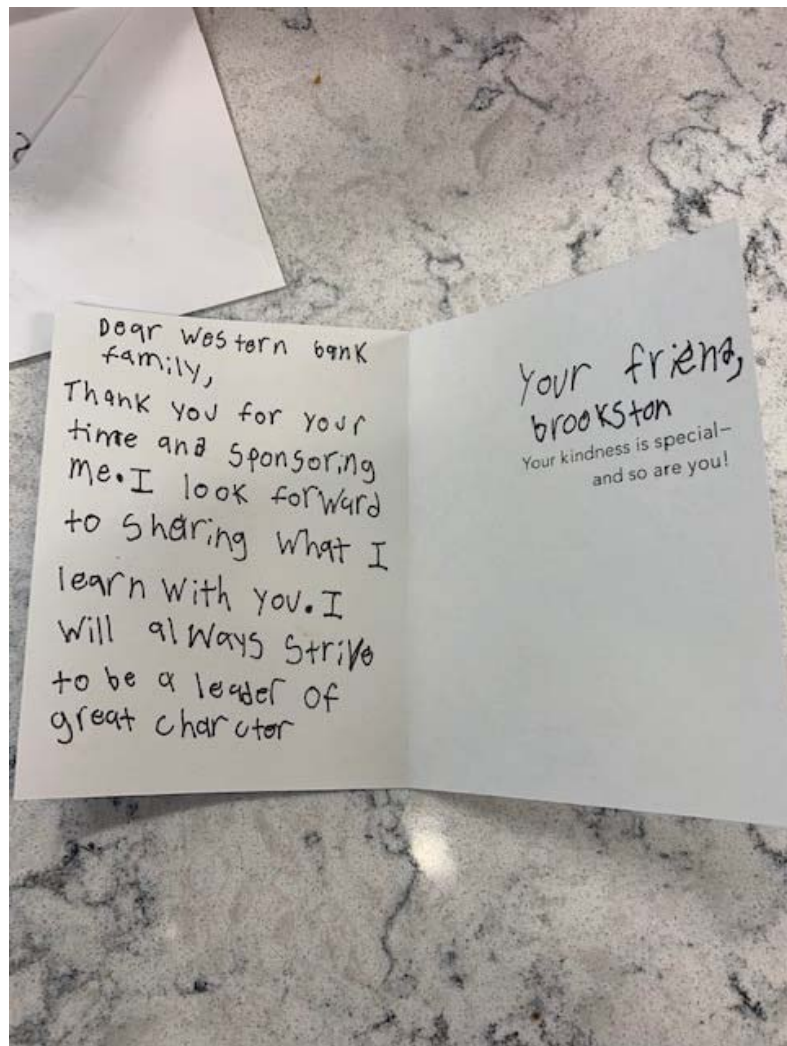 Dear Western bank
family,
Thank you for your
time and sponsoring
me. I look forward
to sharing what I
learn with you. I
will always strive
to be a leader of
great charctor
your friend,
brookston
Your kindness is special—
and so are you!